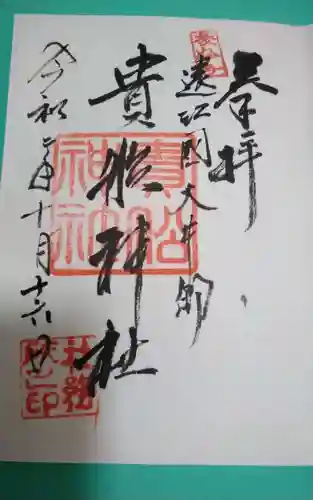 奉拝
遠江国大井郷
貴船神社
貴船神社
令和二年十月十六日